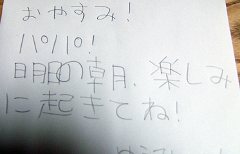 おやすみ!
パパ!
明日の朝、楽しみ
に起きてね!